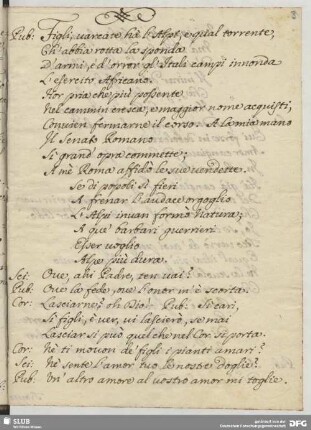 Pub: Figli, varcate hà l'Alpe, e qual torrente,
Ch'abbia rotta la sponda
D'armi, e d'orror gl'Itali campi innonda
L'esercito Africano.
Hor pria che più possente
Nel cammin cresca, e maggior nome acquisti,
Convien fermarne il corso. A la mia mano
Il Senato Romano
Sì grand'opra committe;
A mè Roma affidò le sue vendette.
Se di popoli sì fieri
A frenar l'audace orgoglio
L'Alpi invan formò Natura;
A que' barbari guerrieri
Esser voglio
Alpe più dura.
Sci: Ove, ahi Padre, ten vai?
Pub: Ove la fede, ove l'onor m'è scorta.
Cor: Lasciarne? oh Dio! Pub: Sì cari,
Sì figli, è ver, vi lascierò, se mai
Lasciar si può quel che nel Cor si porta.
Cor: Nè ti movon de' figli i pianti amari?
Sci: Nè sente l'amor tuo le nostre doglie?
Pub: Un' altro amore al vostro amor mi toglie.
SLUB
DFG